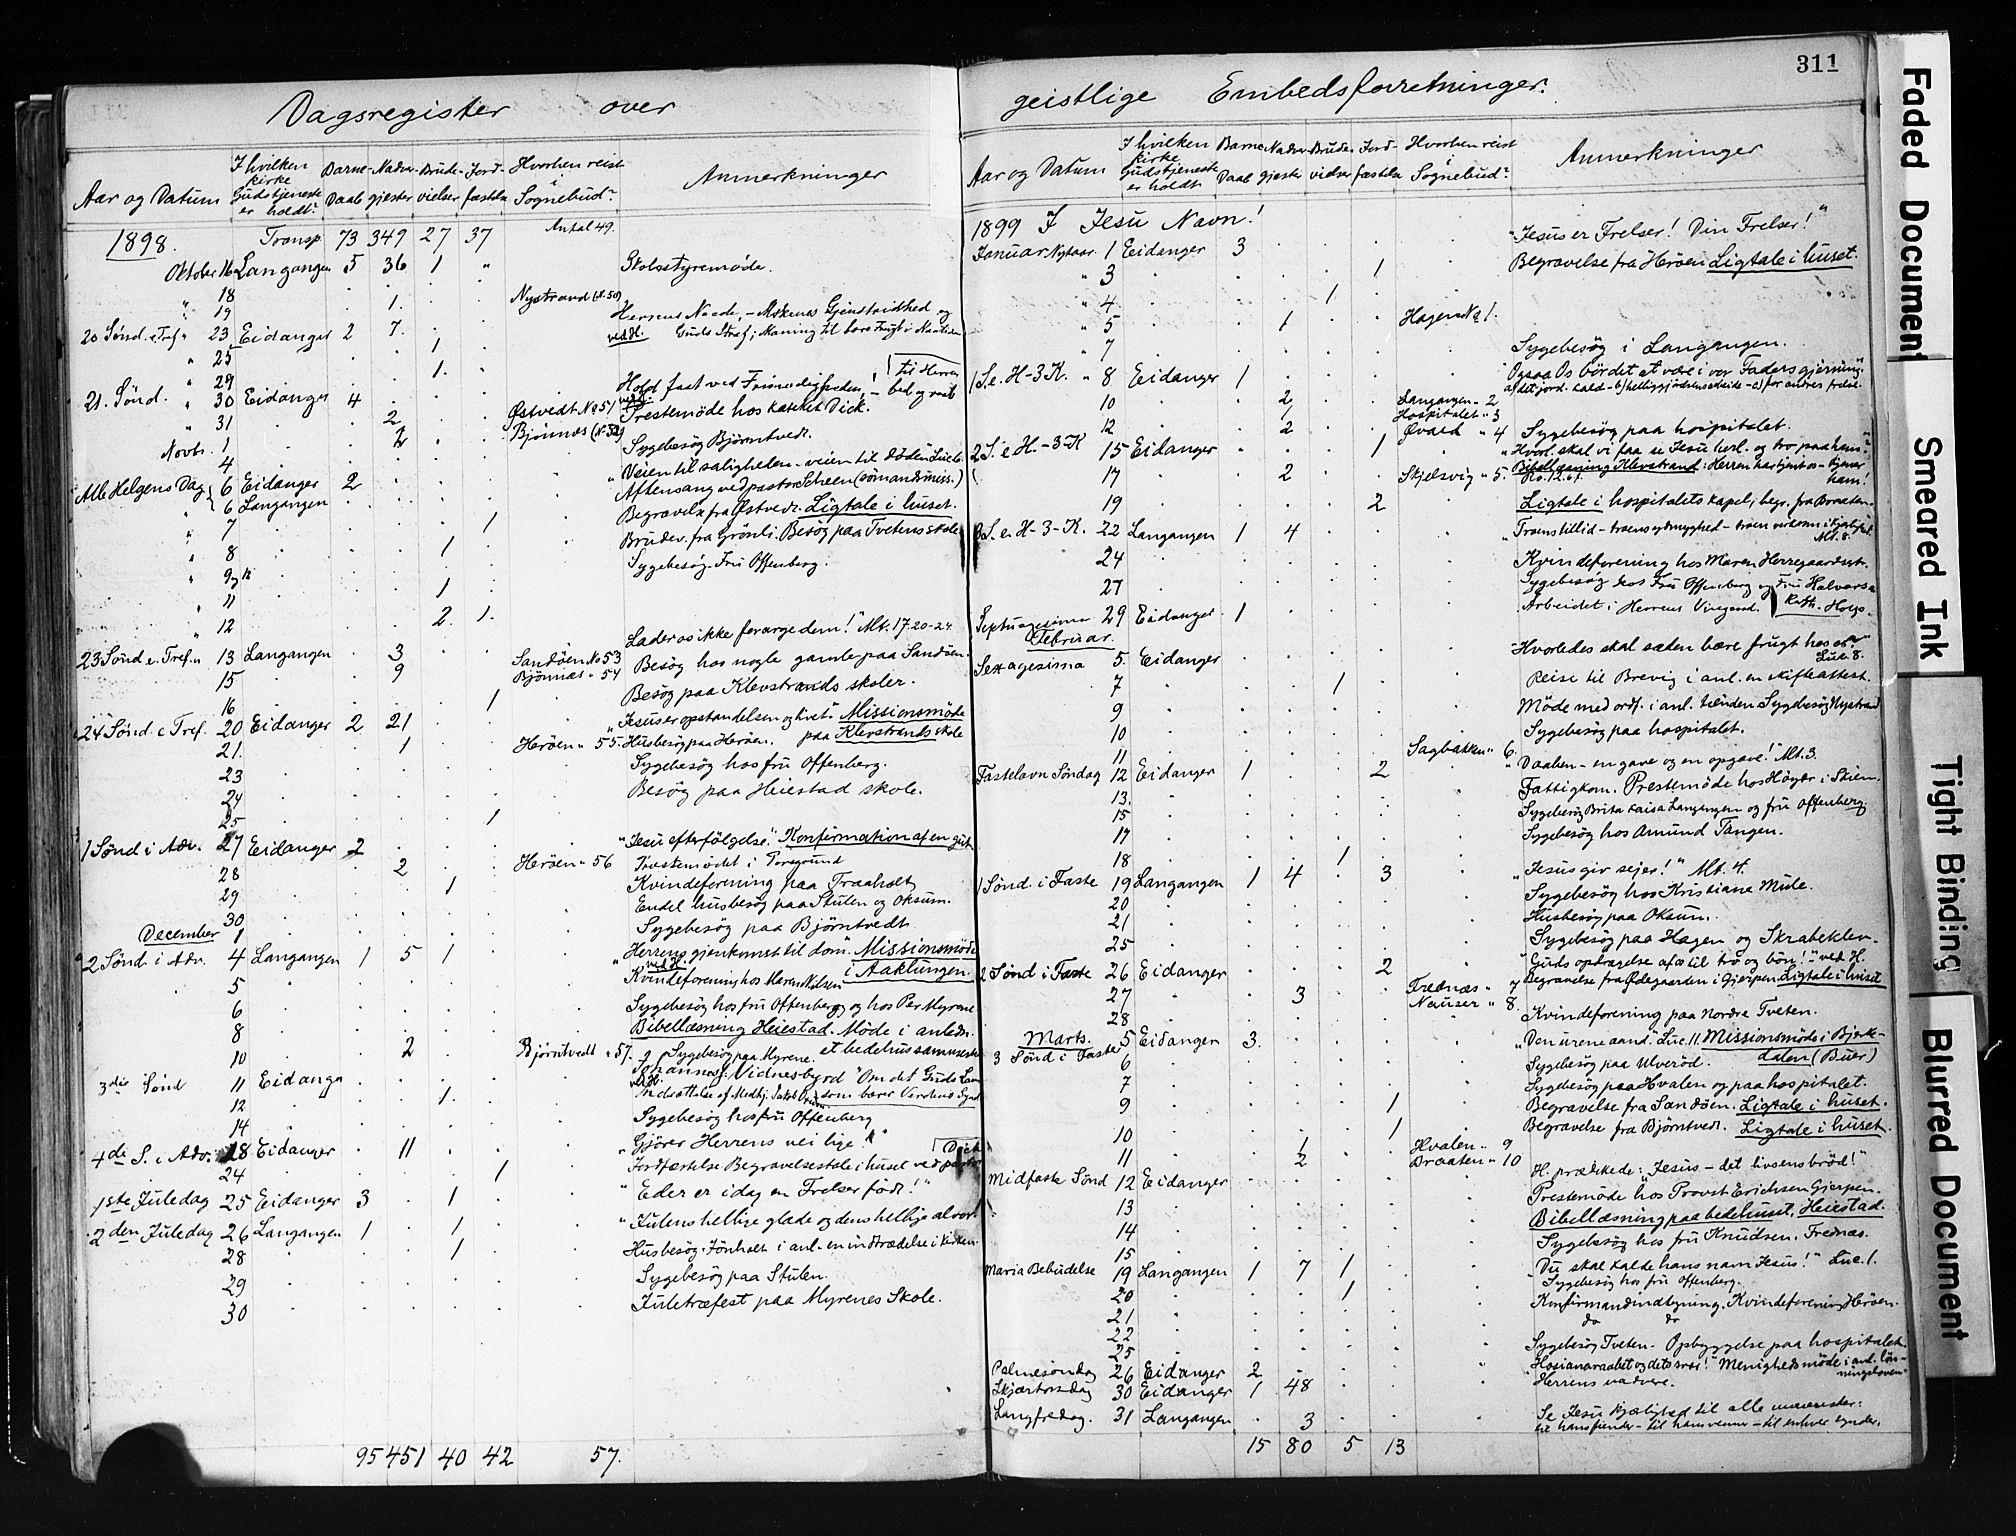 Dagsregister over
Aar og Datum
I hvilken kirke Gudstjeneste er holdt?
Barne Daab
Nadver gjester
Brude vielser
Jord fæstelse
Hvorhen reist i Sognebud?
Anmerkninger
1898. Transp. 73 349 27 37 Antal 49.
Oktober 16 Langangen 5 36 1 "
18 Skolestyremøde.
" 19 1. Nystrand (N. 50)
20 Sønd. e. Tref. " 23 Eidanger 2 7. Herrens Naade, Gjenstridighed og
ved H. Guds Straf;
" 25 1
" 29 1. til Herren
21. Sønd. " 30 Eidanger 4 Hold fast ved bed og raab
31 2 Østvedt No 51 Prestemøde hos kateket Dick.
Novbr. 1 2 Bjønnes (N. 52)
4 Sygebesøg Bjørntvedt.
Alle Helgens Dag 6 Eidanger 2 " Veien til saligheden - veien til døden
6 Langangen Aftensang ved pastor Scheen (sømandsmiss.)
" 7 1 Begravelse fra Østvedt. Ligtale i huset.
" 8 1 Brudev. fra Grønli. Besøg paa Tvetens skole
" 9 Sygebesøg. Fru Offenberg.
11 1
" 12 2. 1.
23 Sønd e. Tref. " 13 Langangen 3 Sandøen No 53 Lader os ikke forarge dem! Mt. 17.20-24
15 9 Bjønnes " 54 Besøg hos nogle gamle paa Sandøen.
16 1 Besøg paa Klevstrands skoler.
24 Sønd e Tref. 20 Eidanger 2 21 " Jesus er opstandelsen og livet." Missionsmøde
21. 1 Herøen " 55. Husbesøg paa Herøen. paa Klevstrands skole
23 Sygebesøg hos fru Offenberg.
24 Besøg paa Heiestad skole.
25 1
1 Sønd i Adv. 27 Eidanger 2 " Jesu efterfølgelse." Konfirmation af en gut
28 2 Herøen " 56 Prestemødet i Porsgrund
29 1 Kvindeforening paa Traaholt
30 Endel husbesøg paa Stulen og Oksum.
December 1 Sygebesøg paa Bjørntvedt
2 Sønd. i Adv. 4 Langangen 1 5 1 " Herrens gjenkomst til dom." Missionsmøde
5 Kvindeforening hos Maren Nilsen i Aaklungen.
6 Sygebesøg hos fru Offenberg og hos Per Myrene
8 Bibellæsning Heiestad. Møde i anledn.
10 2 Bjørntvedt " 57. Sygebesøg paa Myrene. et bedehus sammesteds
3die Sønd 11 Eidanger Johannes: Vidnesbyrd "Om det Guds Lam
12 1. som bærer Verdens Synd
14 Sygebesøg hos fru Offenberg
4de S. i Adv. 18 Eidanger 11 " Gjører Herrens vei lige!"
24 1 Jordfæstelse Begravelsestale i huset ved pastor Dick
1ste Juledag 25 Eidanger 3 1 " Eder er idag en Frelser født!"
2den Juledag 26 Langangen 1 1 " Julens hellige glæde og dens hellige alvor."
28 1 Husbesøg Tønholt i anl. en indtrædelse i kirken
29 Sygebesøg paa Stulen.
30 Juletræfest paa Myrenes Skole.
95 451 40 42 57.
311
geistlige Embedsforretninger.
Aar og Datum
I hvilken kirke Gudstjeneste er holdt
Barne Daab
Nadver gjester
Brude vielser
Jord fæstelse
Hvorhen reist i Sognebud?
Anmerkninger
1899 I Jesu Navn!
Januar Nytaar 1 Eidanger 3 " Jesus er Frelser! Din Frelser!"
" 3 1 Begravelse fra Herøen Ligtale i huset.
" 4 1
" 5 1 Hagen No 1.
" 7 Sygebesøg i Langangen.
1 S. e. H-3 K. " 8 Eidanger 1 Ogsaa Os bør det at være i vor Faders gjerning
10 2 Langangen " 2
1 Hospitalet " 3
12 2 Øvald " 4 Sygebesøg paa hospitalet.
2 S. e H-3-K 15 Eidanger 1 " Hvorl. skal vi faa se Jesu herl. og tro paa ham?"
17 2 Skjelsvig " 5. Bibellæsning Klevstrand: Herren har hjent os - tjener ham!
19 2 Ligtale i hospitalets kapel; begr. fra Braaten.
3 S. e H-3-K. 22 Langangen 1 4 " Troens tillid - troens ydmyghed - Mt. 8.
24 Kvindeforening hos Maren Herregaardsst.
27 Sygebesøg hos Fru Offenberg og Fru Halvorsen
Septuagesima 29 Eidanger 1 Arbeidet i Herrens Vingaard.
Februar.
Sexagesima 5. Eidanger Hvorledes skal sæden bære frugt hos os? Luc. 8.
7 1 Reise til Brevig i anl. en skifteattest.
9 Møde med ordf. i anl. tienden Sygebesøg Nystrand
10 Sygebesøg paa hospitalet.
11 Sagbakken " 6.
Fastelavn Søndag 12 Eidanger 1 2 " Daaben - en gave og en opgave!" Mt. 3.
13. Fattigkom. Prestemøde hos Høyer i Skien.
15 Sygebesøg Brita Kaisa Langangen og fru Offenberg
17 Sygebesøg hos Amund Tangen.
18 1
1 Sønd. i Faste 19 Langangen 1 4 3 " Jesus giv sejer!" Mt. 4.
20 Sygebesøg hos Kristiane Mule.
21 Husbesøg paa Oksum.
25 Sygebesøg paa Hagen og Skrabeklev.
2 Sønd i Faste 26 Eidanger 2 " Guds opdragelse til tro og bøn!" ved H.
27 3 Frednæs " 7 Begravelse fra Ødegaarden i Gjerpen Ligtale i huset
28 Nauser " 8. Kvindeforening paa Nordre Tveten.
Marts.
3 Sønd i Faste 5 Eidanger 3. " Den urene aand. Luc. 11. Missionsmøde i Bjerk-
6 Sygebesøg paa Ulverød. dalen (Buer)
7 Sygebesøg paa Hvalen og paa hospitalet.
9 1 Begravelse fra Sandøen. Ligtale i huset.
10 1 Begravelse fra Bjørntvedt. Ligtale i huset.
11 1 Hvalen " 9
2 Braaten " 10
Midfaste Sønd 12 Eidanger H. prædikede: "Jesus - det livsens brød!"
13 Prestemøde hos Provst Erichsen Gjerpen.
14 Bibellæsning paa bedehuset, Heiestad.
15 Sygebesøg hos fru Knudsen, Frednæs.
Maria Bebudelse 19 Langangen 1 7 1 " Du skal kalde hans navn Jesus!" Luc. 1.
20 1 Sygebesøg hos fru Offenberg.
21 Konfirmandindtegning. Kvindeforening Herøen.
22 do do
25 Sygebesøg Tveten. Opbyggelse paa hospitalet
Palmesøndag 26 Eidanger 2 Hosianaraabet og dets svar! Menighedsmøde i anl. løn-
Skjærtorsdag 30 Eidanger 1 48 " Herrens nadvere. ningsloven
Langfredag. 31 Langangen 3 Se Jesu kjærlighed til alle mennesker:
til hans fiender - til hans venner - til enhver synder.
15 80 5 13
Faded Document
Smeared Ink
Tight Binding
Blurred Document